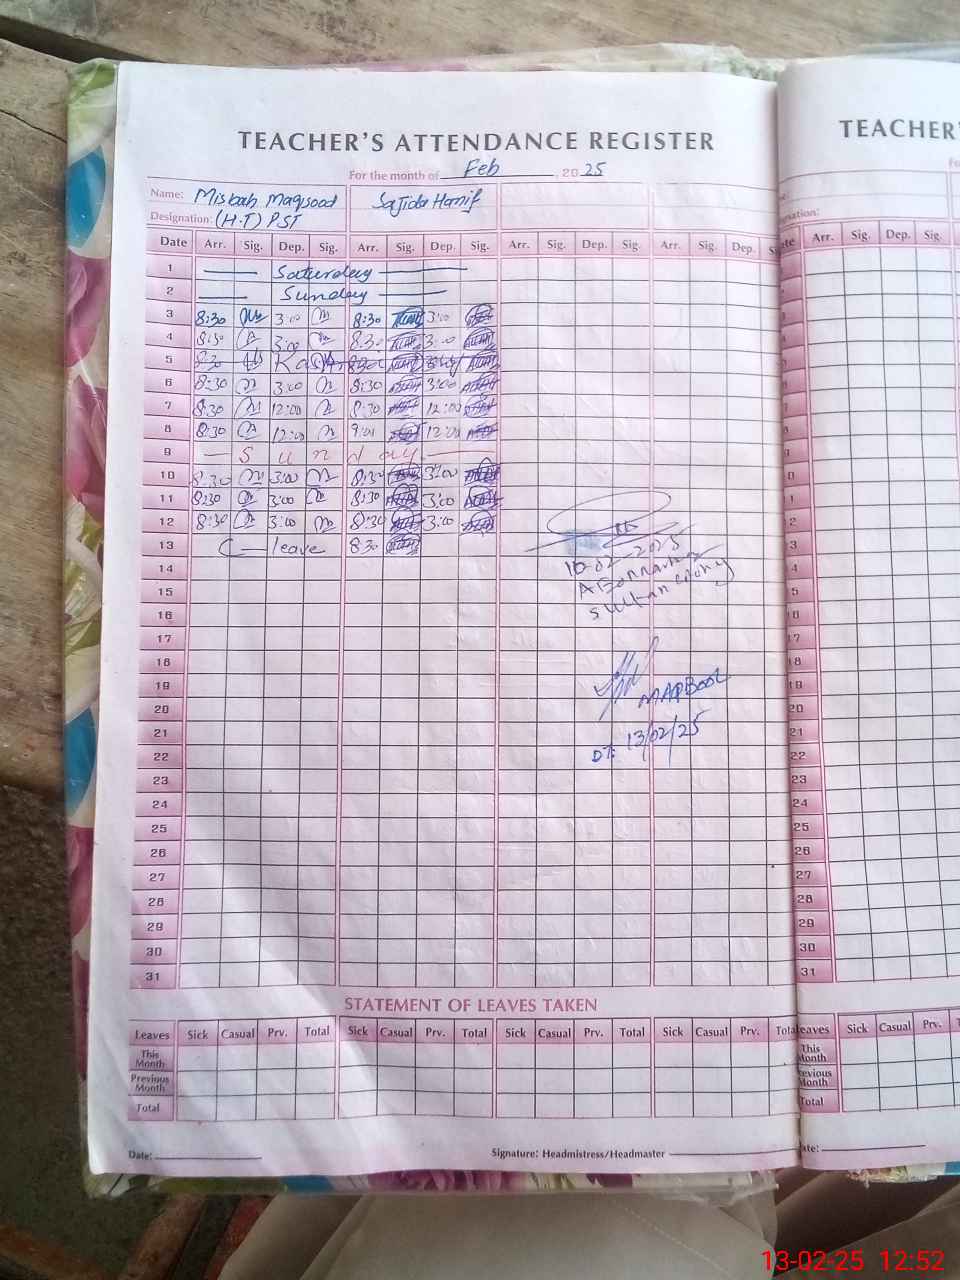 TEACHER'S ATTENDANCE REGISTER
For the month of Feb, 2025
Name: Misbah Maqsood Sajida Hanif
Designation: (H.T) PST
Date Arr. Sig. Dep. Sig. Arr. Sig. Dep. Sig. Arr. Sig. Dep. Sig. Arr. Sig. Dep.
1 — Saturday —
2 — Sunday —
3 8:30 3:00 8:30 3:00
4 8:30 3:00 8:30 3:00
5 8:30
6 8:30 3:00 8:30 3:00
7 8:30 12:00 8:30 12:00
8 8:30 12:00 9:01 12:00
9 — Sunday —
10 8:30 3:00 8:30 3:00
11 8:30 3:00 8:30 3:00
12 8:30 3:00 8:30 3:00
13 C — leave 8:30
14
15
16
17
18
19
20
21
22
23
24
25
26
27
28
29
30
31
10-02-2025
MAQBOOL
DT: 13/02/25
STATEMENT OF LEAVES TAKEN
Leaves Sick Casual Prv. Total Sick Casual Prv. Total Sick Casual Prv. Total Sick Casual Prv. Total
This Month
Previous Month
Total
Date: Signature: Headmistress/Headmaster
TEACHER'
Arr. Sig. Dep. Sig.
18
20
21
22
23
24
25
26
27
28
29
30
31
Sick Casual Prv.
This Month
Month
Total
13-02-25 12:52